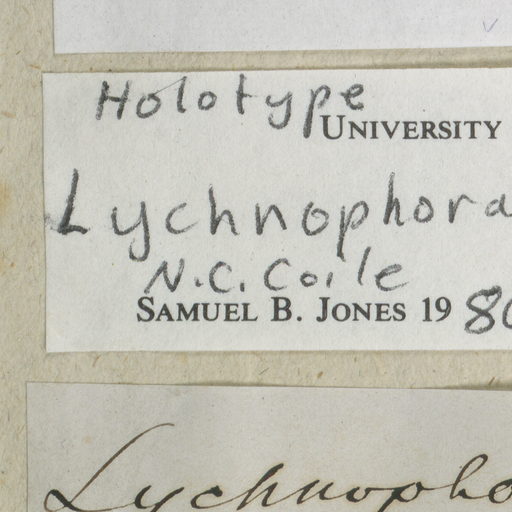 Holotype
UNIVERSITY
Lychnophora
N.C. Coile
SAMUEL B. JONES 19 80
Lychnopho